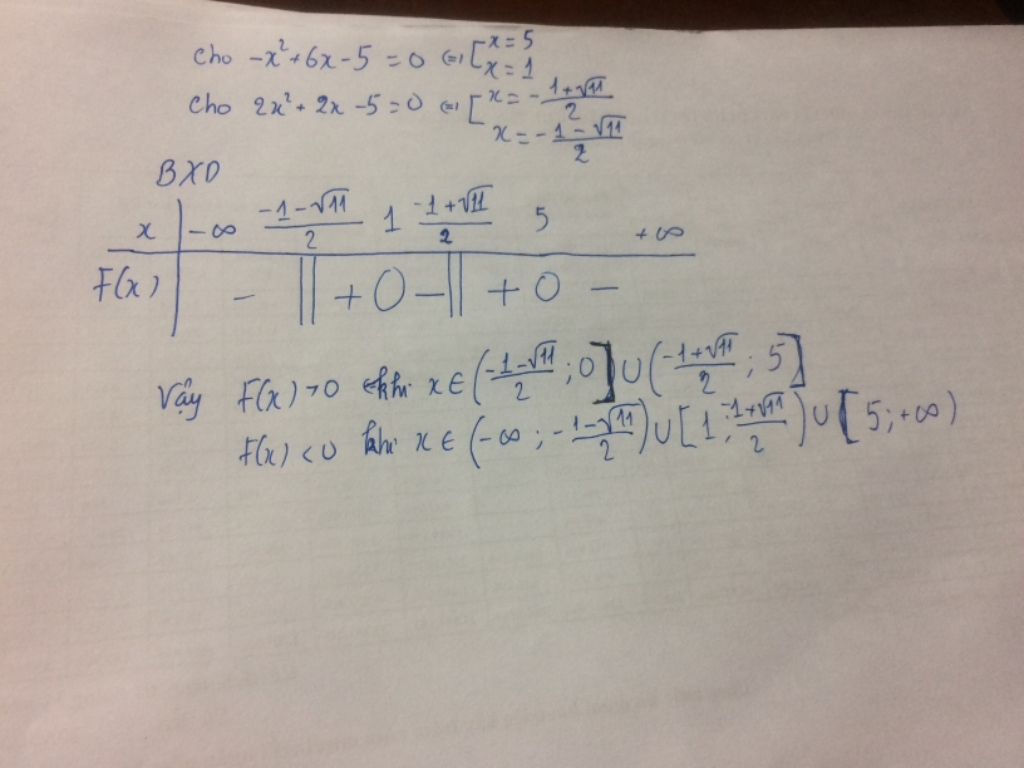 Cho -x² + 6x - 5 = 0 (=) [ x = 5
x = 1
Cho 2x² + 2x - 5 = 0 (=) [ x = -\frac{1+√11}{2}
x = -\frac{1-√11}{2}
BXD
x | -∞ \frac{-1-√11}{2} 1 \frac{-1+√11}{2} 5 +∞
F(x) | - || + 0 - || + 0 -
Vậy F(x) > 0 khi x ∈ (\frac{-1-√11}{2} ; 0] ∪ (\frac{-1+√11}{2} ; 5]
F(x) < 0 khi x ∈ (-∞ ; -\frac{1-√11}{2}) ∪ [1 ; \frac{-1+√11}{2}) ∪ [5 ; +∞)